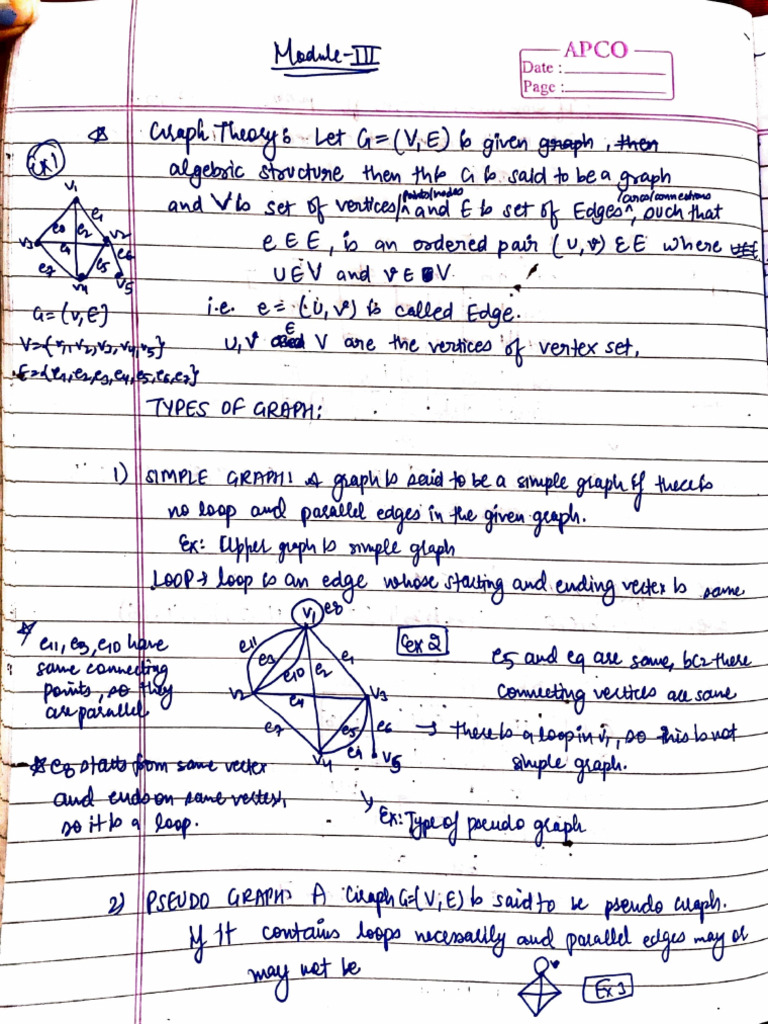 Module-III
APCO
Date :
Page :
Graph Theory: Let G = (V, E) is given graph, then
algebric structure then the G is said to be a graph
and V is set of vertices/points/nodes and E is set of Edges/curves/connections, such that
e ∈ E, is an ordered pair (u, v) ∈ E where
u ∈ V and v ∈ V.
i.e. e = (u, v) is called Edge.
u, v ∈ V are the vertices of vertex set,
Ex 1
v1
e1
e0 e2 v2
v3 e4 e6
e5
e7 v4 v5
G = (V, E)
V = {v1, v2, v3, v4, v5}
E = {e1, e2, e3, e4, e5, e6, e7}
TYPES OF GRAPH:
1) SIMPLE GRAPH: A graph is said to be a simple graph if there is
no loop and parallel edges in the given graph.
Ex: Upper graph is simple graph
LOOP → loop is an edge whose starting and ending vertex is same
v1 e8
e11
e3 e10 e2 e1
v2 e4 v3
e7 e5 e6
v4 e9 v5
Ex 2
* e11, e3, e10 have
same connecting
points, so they
are parallel
e5 and e9 are same, bcz there
connecting vertices are same
→ there is a loop in v1, so this is not
simple graph.
* e8 starts from same vertex
and ends on same vertex,
so it is a loop.
Ex: Type of pseudo graph
2) PSEUDO GRAPH: A Graph G=(V, E) is said to be pseudo graph.
If it contains loops necessarily and parallel edges may or
may not be
Ex 3